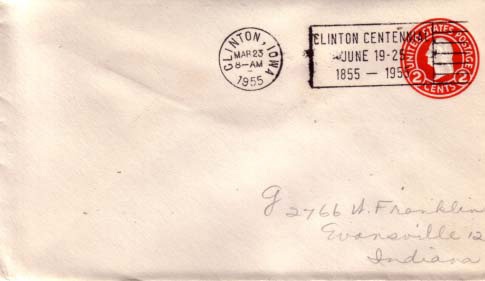 CLINTON, IOWA
MAR 23
8-AM
1955
CLINTON CENTENNIAL
JUNE 19-25
1855 — 195
UNITED STATES POSTAGE
2 2
CENTS
2766 W. Franklin
Evansville 12
Indiana